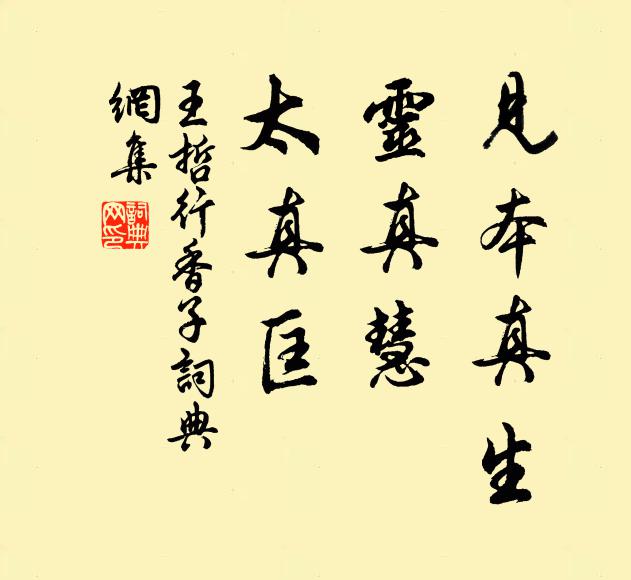 見本真生
靈真慧
太真匡
王哲行香子詞典
網集
詞典
网印